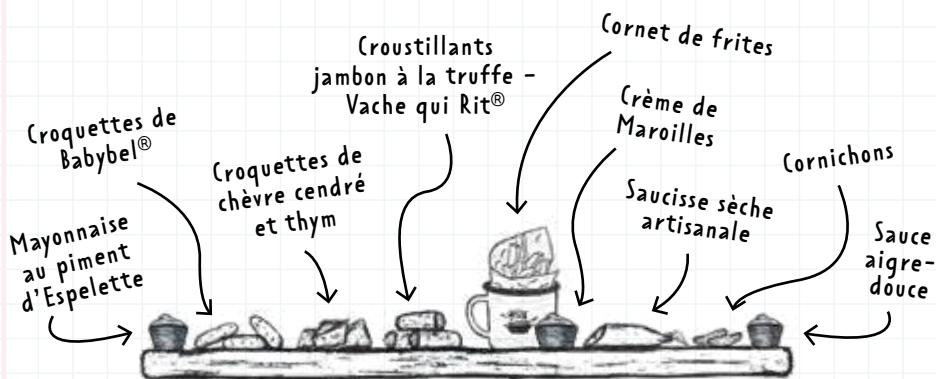 Mayonnaise
au piment
d'Espelette
Croquettes de
Babybel®
Croquettes de
chèvre cendré
et thym
Croustillants
jambon à la truffe –
Vache qui Rit®
Cornet de frites
Crème de
Maroilles
Saucisse sèche
artisanale
Cornichons
Sauce
aigre-
douce